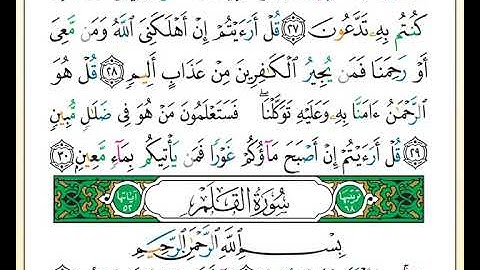 كُنتُم بِهِۦ تَدَّعُونَ ٢٧ قُلْ أَرَءَيْتُمْ إِنْ أَهْلَكَنِىَ ٱللَّهُ وَمَن مَّعِىَ
أَوْ رَحِمَنَا فَمَن يُجِيرُ ٱلْكَٰفِرِينَ مِنْ عَذَابٍ أَلِيمٍ ٢٨ قُلْ هُوَ
ٱلرَّحْمَٰنُ ءَامَنَّا بِهِۦ وَعَلَيْهِ تَوَكَّلْنَا ۖ فَسَتَعْلَمُونَ مَنْ هُوَ فِى ضَلَٰلٍ مُّبِينٍ
٢٩ قُلْ أَرَءَيْتُمْ إِنْ أَصْبَحَ مَآؤُكُمْ غَوْرًا فَمَن يَأْتِيكُم بِمَآءٍ مَّعِينٍۭ ٣٠
ترتيبها ٦٨ سُورَةُ القَلَمِ آياتها ٥٢
بِسْمِ ٱللَّهِ ٱلرَّحْمَٰنِ ٱلرَّحِيمِ